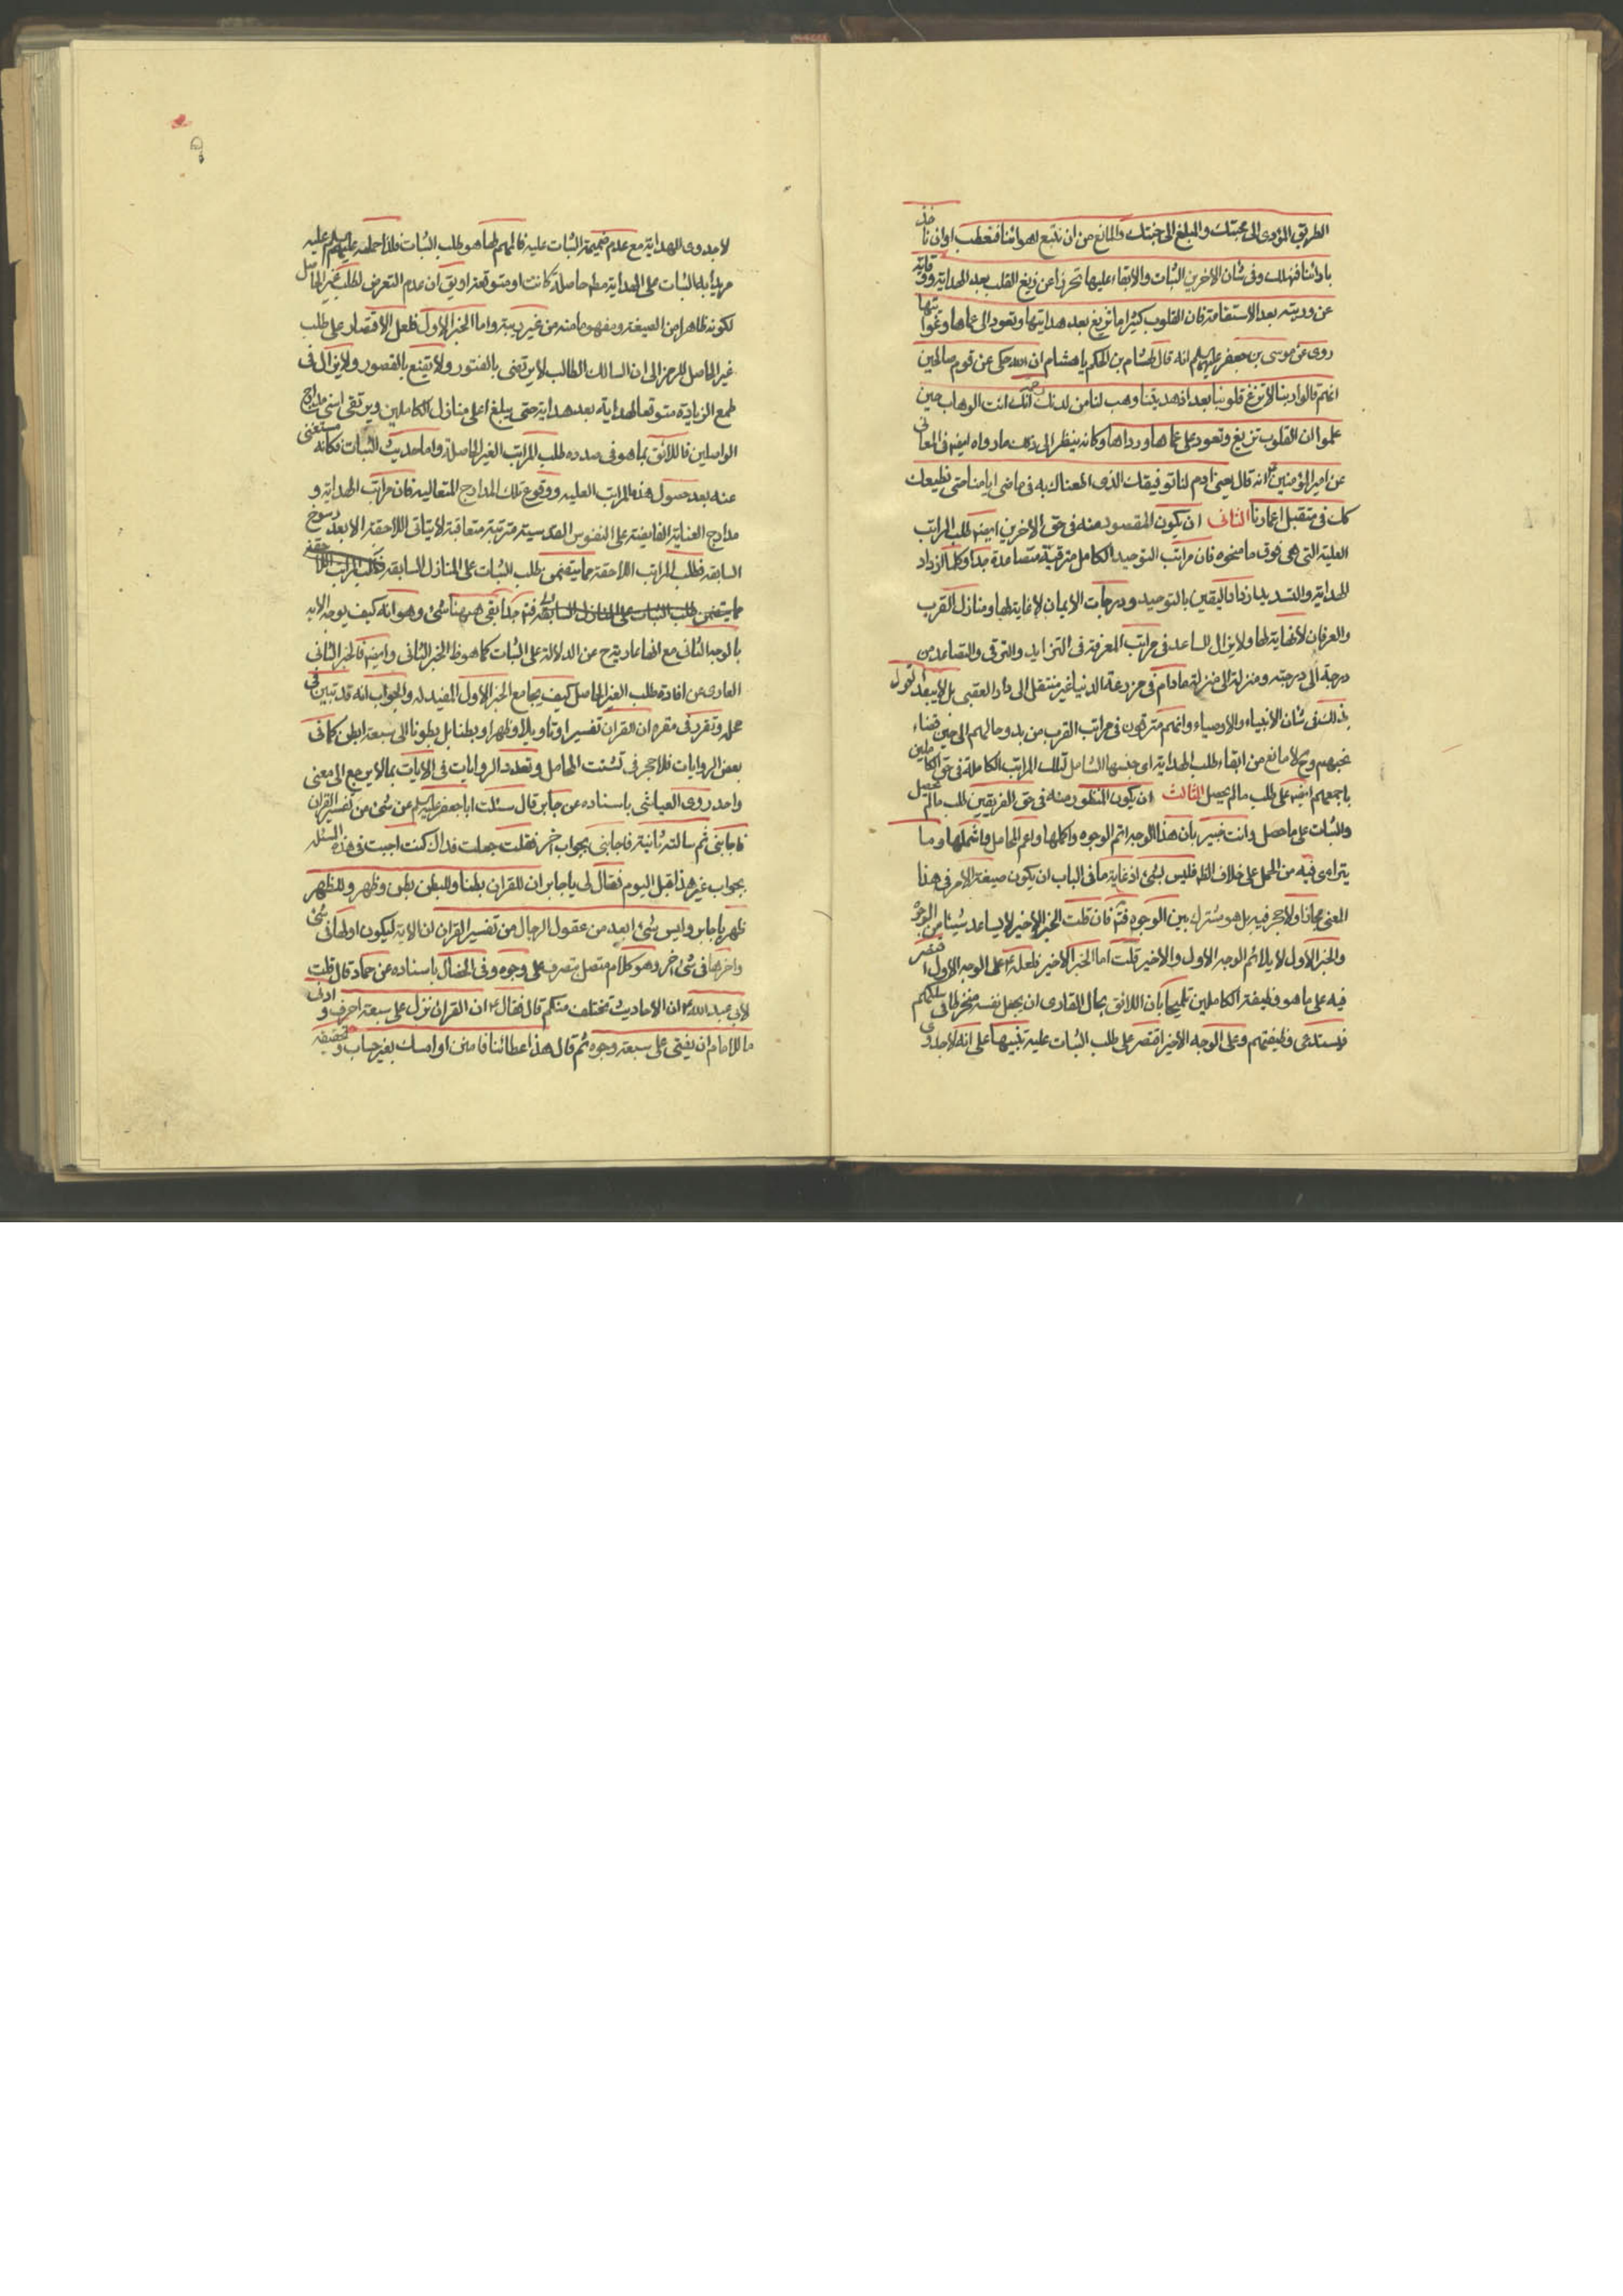 الطريق المؤدى الى محبتك والمبلغ الى جنتك والمانع من ان نتبع اهوائنا فنعطب او ان ناخذ
بارائنا فنهلك وفى شان الاخرين الثبات والابقاء عليها تحرزا عن زيغ القلب بعد الهداية ووقايته
عن وريبته بعد الاستقامة فان القلوب كثيرا ما تزيغ بعد هدايتها وتعود الى عماها وغوايتها
روى عن موسى بن جعفر عليهم السلام انه قال لهشام بن الحكم يا هشام ان الله حكى عن قوم صالحين
انهم قالوا ربنا لا تزغ قلوبنا بعد اذ هديتنا وهب لنا من لدنك رحمة انك انت الوهاب حين
علموا ان القلوب تزيغ وتعود على عماها ورداها وكانه ينظر الى ذلك ما رواه ايضا فى المعانى
عن امير المؤمنين انه قال يعنى ادم لنا توفيقك الذى اطعناك به فى ماضى ايامنا حتى نطيعك
كك فى متقبل اعمارنا الثانى ان يكون المقصود منه فى حق الاخرين ايضا طلب المراتب
العلية التى هى فوق ما منحوه فان مراتب التوحيد الكامل مترقية متصاعدة جدا وكلما ازداد
الهداية والتسديد ازداد اليقين بالتوحيد ودرجات الايمان لا غاية لها ومنازل القرب
والعرفان لا نهاية لها ولا يزال الساعد فى مراتب المعرفة فى التزايد والترقى والتصاعد من
درجة الى درجة ومنزلة الى منزلة ما دام فى مزرعة الدنيا غير منتقل الى دار العقبى بل لا يبعد القول
بذلك فى شان الانبياء والاوصياء وانهم مترقون فى مراتب القرب من بدو حالهم الى حين قضاء
نحبهم وح لا مانع من ابقاء طلب الهداية اى جنسها الشامل لتلك المراتب الكاملة فى حق الكاملين
باجمعهم ايضا على طلب ما لم يحصل الثالث ان يكون المنظور منه فى حق الفريقين طلب ما لم يحصل
والثبات على ما حصل وانت خبير بان هذا الوجه اتم الوجوه واكملها واعم المحامل واشملها وما
يتراءى فيه من الحمل على خلاف الظ فليس بشئ اذ غاية ما فى الباب ان يكون صيغة الامر فى هذا
المعنى مجازا ولا حجر فيه بل هو مشترك بين الوجوه فتم فان قلت الخبر الاخير لا يساعد شيئا من الوجوه
والخبر الاول لا يلائم الوجه الاول والاخير قلت اما الخبر الاخير فلعله على الوجه الاول اقتصر
فيه على ما هو وظيفة الكاملين تلميحا بان اللائق بحال القارى ان يجعل نفسه منخرطا فى سلكهم
فيستدعى وظيفتهم وعلى الوجه الاخير اقتصر على طلب الثبات عليه تنبيها على انه لا جدوى
لا جدوى الهداية مع عدم ضميمة الثبات عليه فالمهم لها هو طلب الثبات فلذا حمله عليهم السلم عليه
مريدا به الثبات على الهداية مطلقا حاصلة كانت او متوقعة او يق ان عدم التعرض لطلب غير الحاصل
لكونه ظاهرا من الصيغة ومفهوما منه من غير ريبة واما الخبر الاول فلعل الاقتصار على طلب
غير الحاصل للرمز الى ان السالك الطالب لا يرتضى بالفتور ولا يقنع بالقصور ولا يزال فى
طمع الزيادة متوقعا لهداية بعد هداية حتى يبلغ اعلى منازل الكاملين ويرتقى اسنى مدارج
الواصلين فاللائق بما هو فى صدده طلب المراتب الغير الحاصلة واما حديث الثبات فكانه مستغنى
عنه بعد حصول هذه المراتب العليه ووقوع تلك المدارج المتعاليه فان مراتب الهداية و
مدارج العناية الفايضة على النفوس القدسية مترتبة متعاقبة لا يتاتى اللاحقة الا بعد رسوخ
السابقه فطلب المراتب اللاحقة مما يتضمن طلب الثبات على المنازل السابقه فطلب المراتب اللاحقه
مما يتضمن طلب الثبات على المنازل السابقه فتم جدا بقى ههنا شئ وهو انه كيف يوجه الايه
بالوجه الثانى مع انها عاديته عن الدلالة على الثبات كما هو ظ الخبر الثانى وايضا فالخبر الثانى
العارى عن افادة طلب الغير الحاصل كيف يجامع الخبر الاول المفيد له والجواب انه قد تبين فى
محله وتقرر فى مقره ان القران تفسيرا وتاويلا وظهرا وبطنا بل بطونا الى سبعة ابطن كما فى
بعض الروايات فلا حجر فى تشتت المحامل وتعدد الروايات فى الايات بما لا يرجع الى معنى
واحد روى العياشى باسناده عن جابر قال سئلت ابا جعفر عليه السلم عن شئ من تفسير القران
فاجابنى ثم سالته ثانية فاجابنى بجواب اخر فقلت جعلت فداك كنت اجبت فى هذه المسئله
بجواب غير هذا قبل اليوم فقال لى يا جابر ان للقران بطنا وللبطن بطن وظهر وللظهر
ظهر يا جابر وليس شئ ابعد من عقول الرجال من تفسير القران ان الاية ليكون اولها فى شئ
واخرها فى شئ اخر وهو كلام متصل يتصرف على وجوه وفى الخصال باسناده عن حماد قال قلت
لابى عبد الله ان الاحاديث تختلف منكم قال فقال ان القران نزل على سبعة احرف و ادنى
ما للامام ان يفتى على سبعة وجوه ثم قال هذا عطائنا فامنن او امسك بغير حساب و